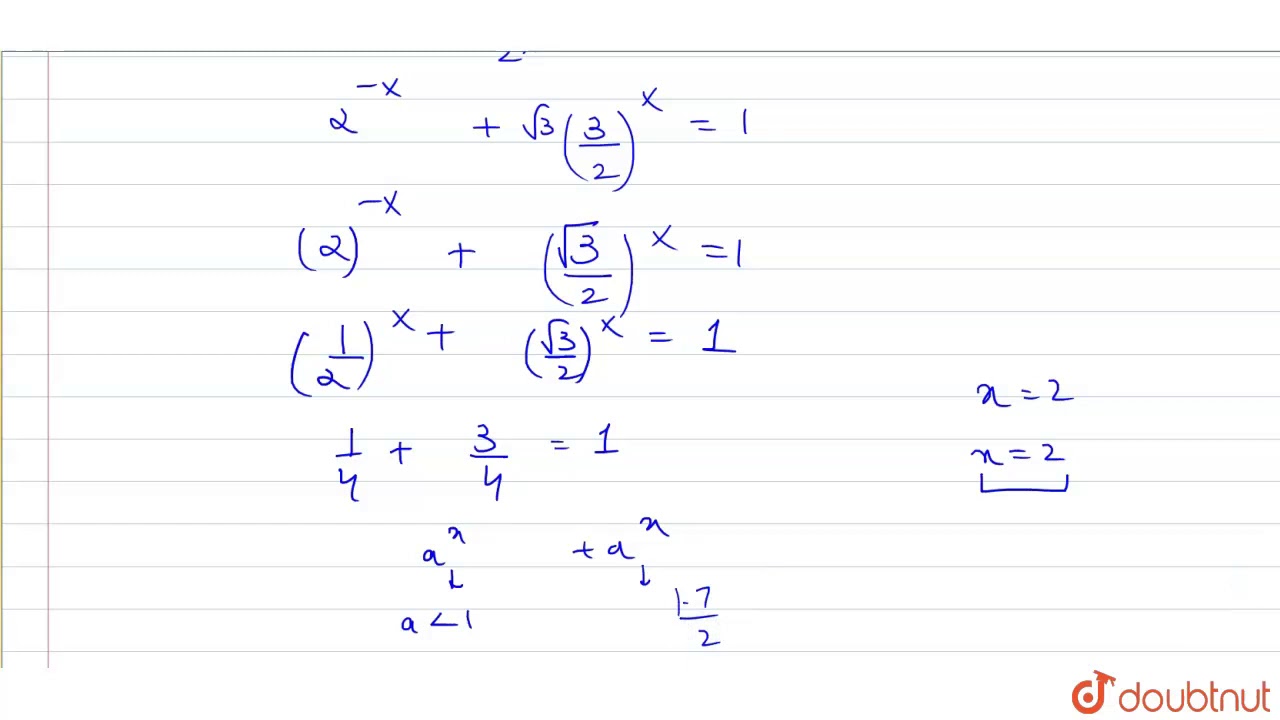 2^{-x} + √3 (3/2)^x = 1
(2)^{-x} + (√3/2)^x = 1
(1/2)^x + (√3/2)^x = 1
x = 2
1/4 + 3/4 = 1
x = 2
a^x + a^x
↓ ↓
a < 1 1.7/2
doubtnut